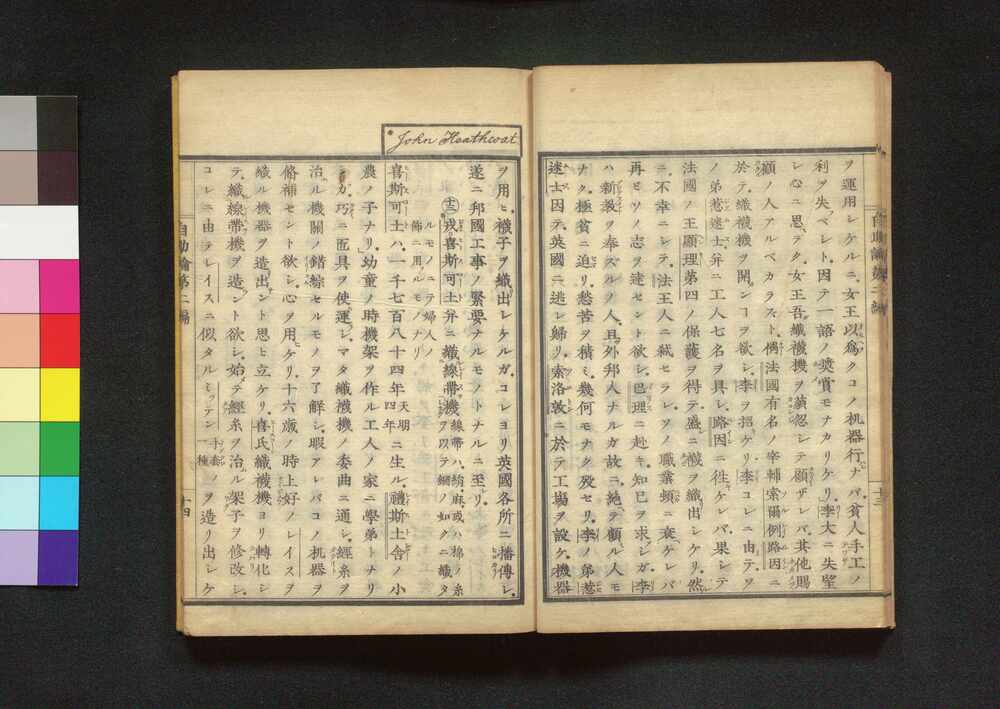 ヲ運用シケルニ、女王以為ラクコノ机器行ナハレバ貧人手工ノ
利ヲ失ベシト、因テ一語ノ奬賞モナカリケリ、李大ニ失望
シ心ニ思ヘラク、女王吾織襪機ヲ蔑忽シテ顧ザレバ、其他賜
顧ノ人アルベカラズト、偶法國有名ノ宰輔索爾例路因ニ
於テ織襪機ヲ開ンコヲ欲シ、李ヲ招ケリ、李コレニ由テソ
ノ弟惹迷士并ニ工人七名ヲ具シ、路因ニ徃ケレバ、果シテ
法國ノ王顯理第四ノ保護ヲ得テ、盛ニ襪ヲ織出シケリ、然
ニ不幸ニシテ、法王人ニ弑セラレ、ソノ職業頓ニ衰ケレバ
再ビソノ志ヲ達セント欲シ、巴理ニ赴キ、知已ヲ求シガ、李
ハ新教ヲ奉ズルノ人、且外邦人ナルガ故ニ、絶テ顧ル人モ
ナク、極貧ニ迫リ、愁苦ヲ積ミ、幾何モナク歿セリ、李ノ弟惹
迷士因テ、英國ニ逃レ歸リ、索洛敦ニ於テ工場ヲ設ケ、機器
十三
John Heathcoat
ヲ用ヒ、襪子ヲ織出シケルガ、コレヨリ英國各所ニ播傳シ、
遂ニ邦國工事ノ緊要ナルモノトナルニ至リ、
十三 戎喜斯可土并ニ織線帶機 線帶ハ絹麻或ハ棉ノ糸ヲ以テ網ノ如クニ織タ
ルモノニテ婦人ノ飾ニ用ルモノナリ
喜斯可土ハ、一千七百八十四年 天明四年 ニ生ル、禮斯土舎ノ小
農ノ子ナリ、幼童ノ時機架ヲ作ル工人ノ家ニ學弟トナリ
力、巧ニ匝具ヲ使運シ、マタ織襪機ノ委曲ニ通シ、經糸ヲ
治ル機關ノ錯綜セルモノヲ了解シ、暇アレバコノ机器ヲ
脩補セント欲シ、心ヲ用ケリ、十六歳ノ時上好ノレイスヲ
織ル機器ヲ造出ント思ヒ立ケリ、喜氏織襪機ヨリ轉化シ
テ、織線帶機ヲ造ント欲シ、始テ經糸ヲ治ル架子ヲ修改シ、
コレニ由テレイスニ似タルミッテン 手套ノ一種 ヲ造リ出シケ
自助論第二編
十四